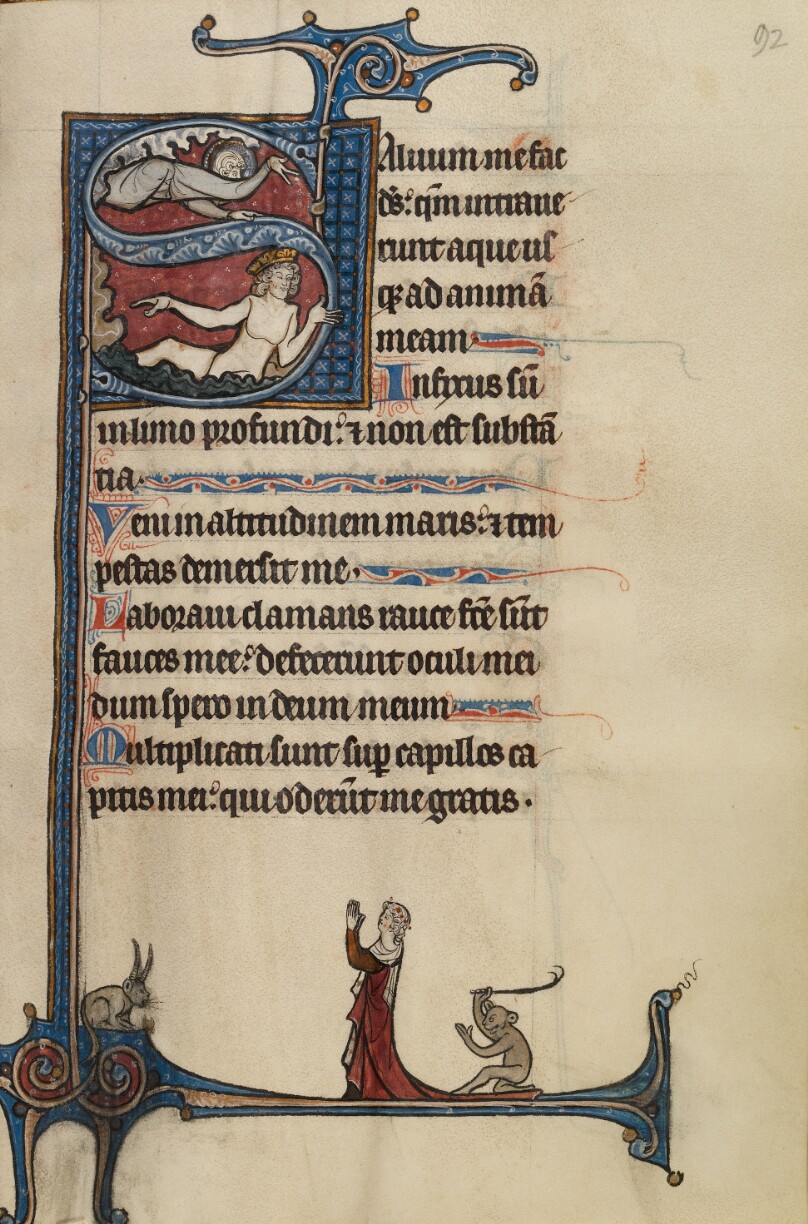 92
Aluum me fac
ds: qm intraue
runt aque us
qȝ ad animā
meam
Infixus sū
in limo profundi: ⁊ non est substā
tia.
Veni in altitudinem maris: ⁊ tem
pestas demersit me.
Laboraui clamans rauce fcē sūt
fauces mee: defecerunt oculi mei
dum spero in deum meum
Multiplicati sunt suꝑ capillos ca
pitis mei: qui oderūt me gratis.